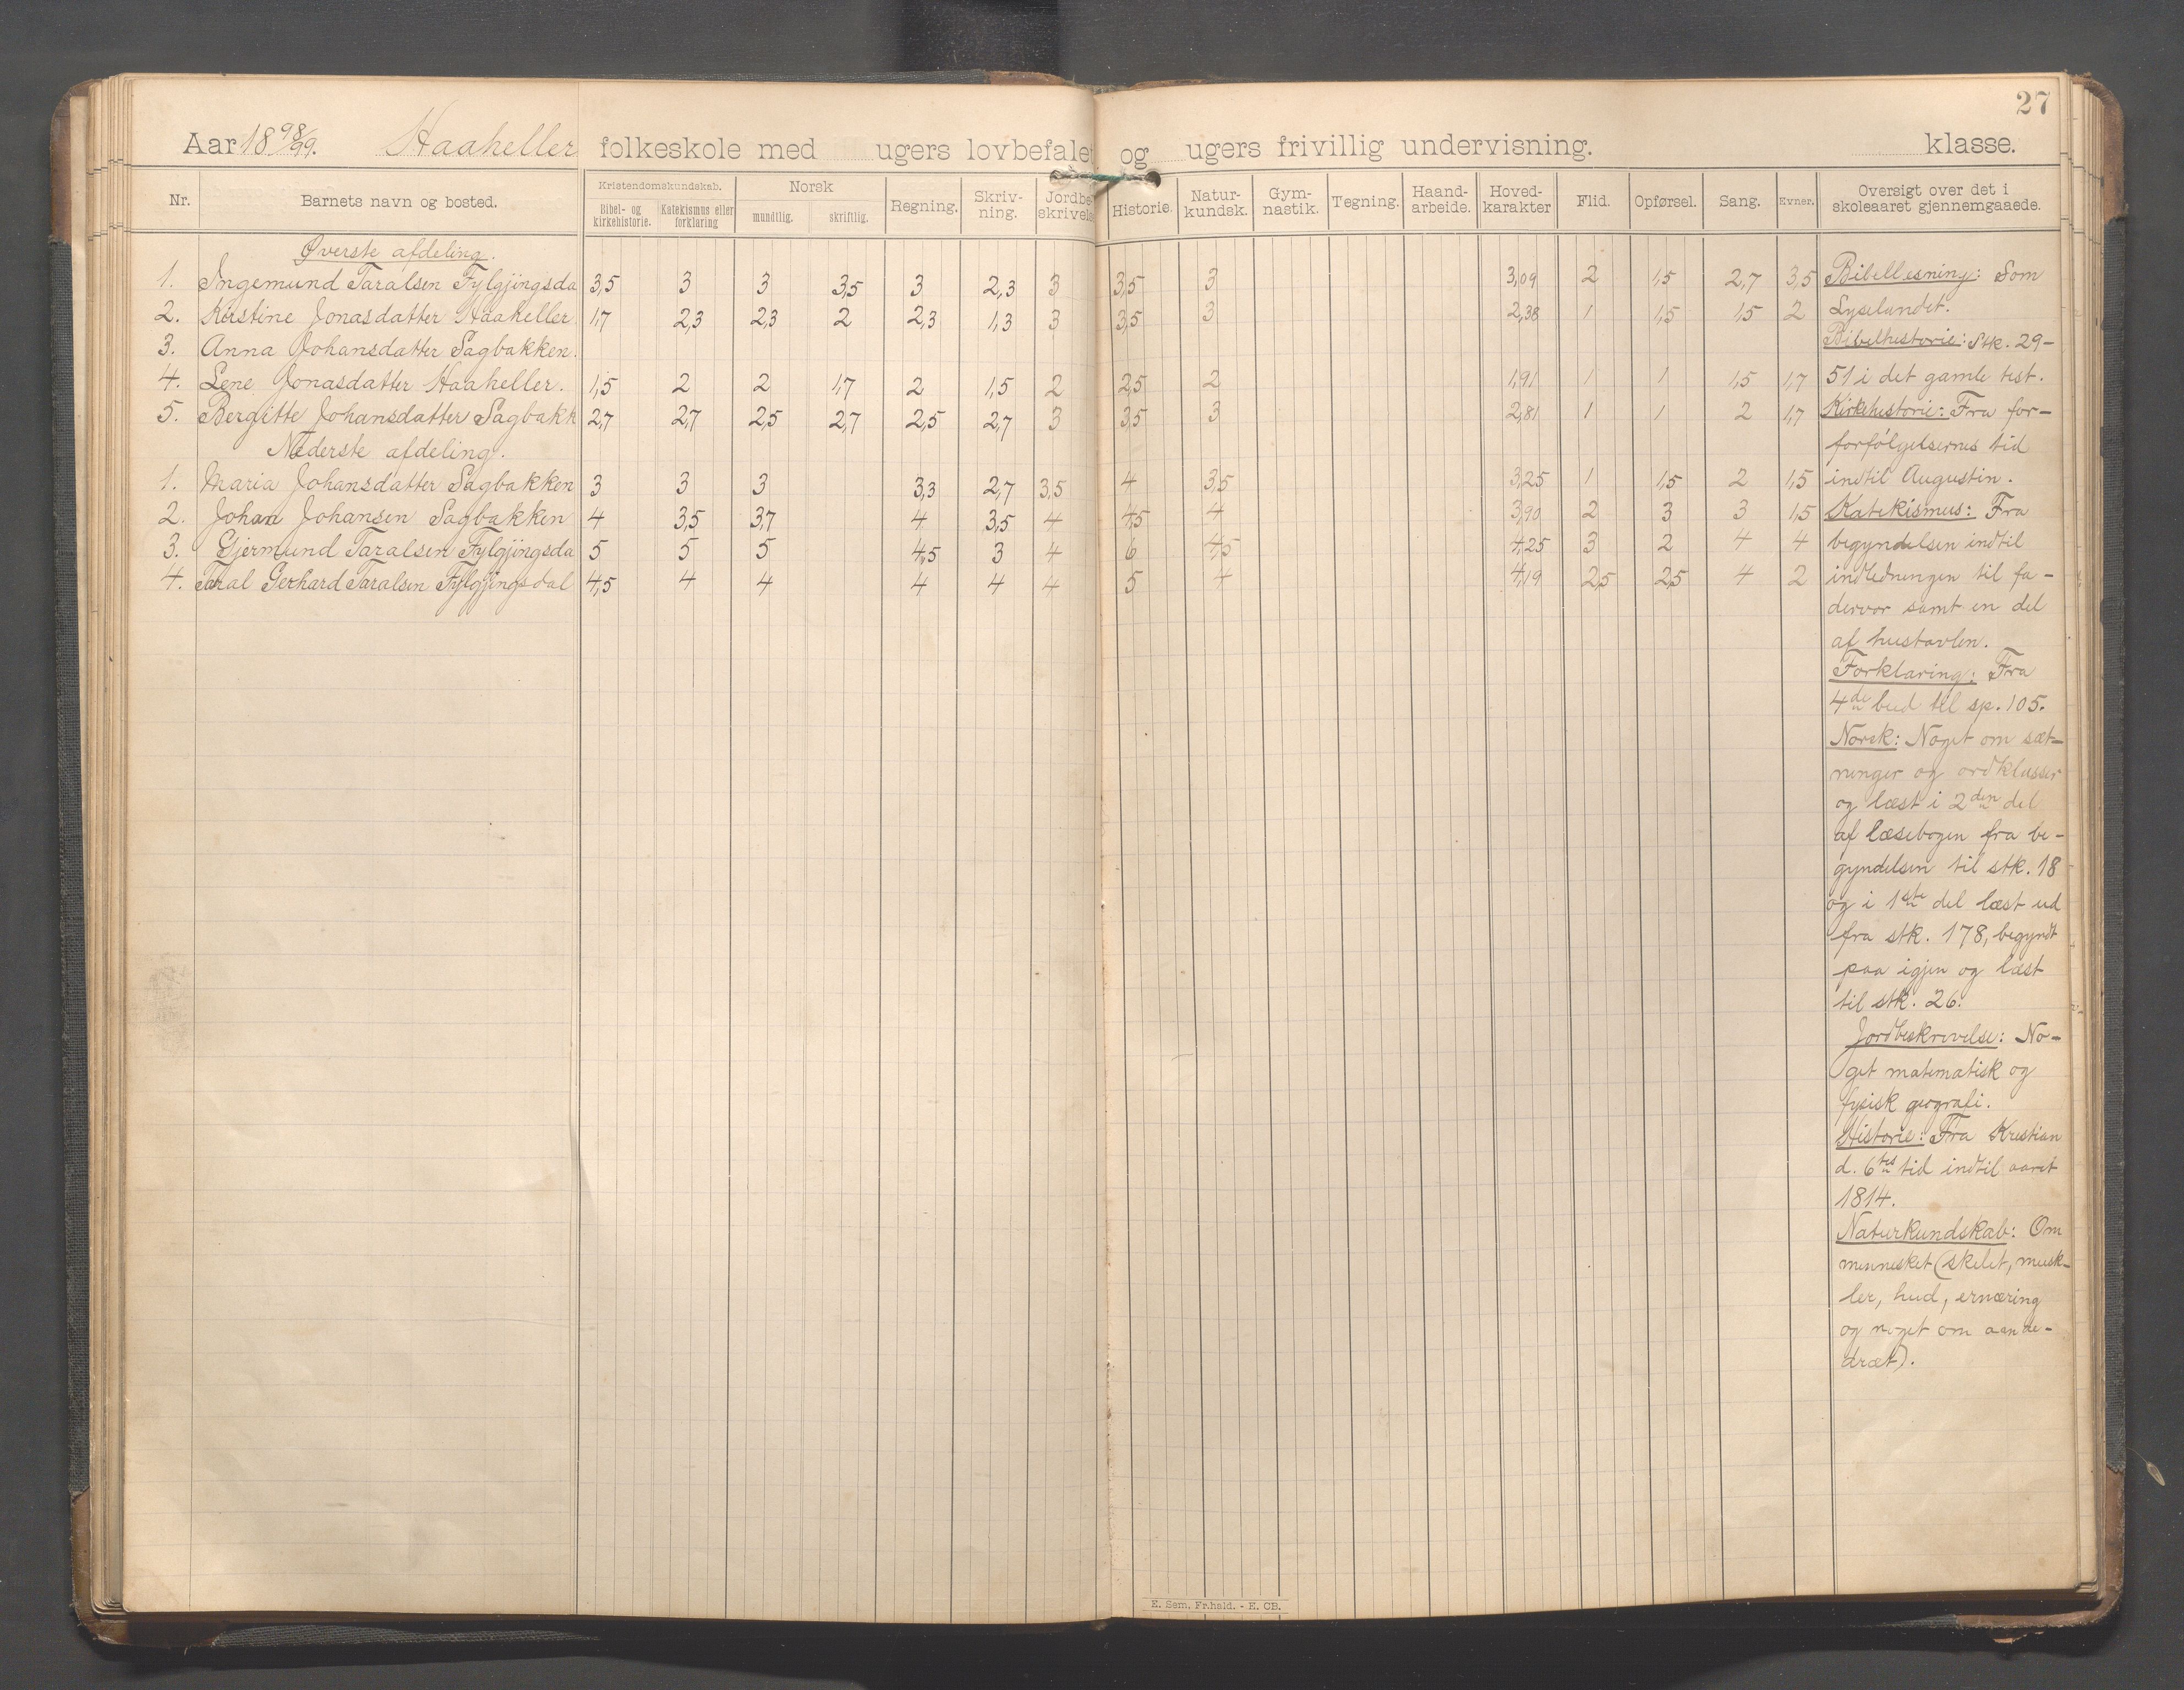 27
Aar 18 98/99. Haaheller folkeskole med ugers lovbefalet og ugers frivillig undervisning. klasse.
Nr. Barnets navn og bosted. Kristendomskundskab. Bibel- og kirkehistorie. Katekismus eller forklaring Norsk mundtlig. skriftlig. Regning. Skriv-ning. Jordbe-skrivelse Historie. Natur-kundsk. Gym-nastik. Tegning. Haand-arbeide. Hoved-karakter Flid. Opførsel. Sang. Evner. Oversigt over det i skoleaaret gjennemgaaede.
Øverste afdeling.
1. Ingemund Taralsen Fylgjingsda 3,5 3 3 3,5 3 2,3 3 3,5 3 3,09 2 1,5 2,7 3,5
2. Kristine Jonasdatter Haaheller 1,7 2,3 2,3 2 2,3 1,3 3 3,5 3 2,38 1 1,5 1,5 2
3. Anna Johansdatter Sagbakken.
4. Lene Jonasdatter Haaheller. 1,5 2 2 1,7 2 1,5 2 2,5 2 1,91 1 1 1,5 1,7
5. Bergitte Johansdatter Sagbakk 2,7 2,7 2,5 2,7 2,5 2,7 3 3,5 3 2,81 1 1 2 1,7
Nederste afdeling.
1. Maria Johansdatter Sagbakken 3 3 3 3,3 2,7 3,5 4 3,5 3,25 1 1,5 2 1,5
2. Johan Johansen Sagbakken 4 3,5 3,7 4 3,5 4 4,5 4 3,90 2 3 3 1,5
3. Gjermund Taralsen Fylgjingsda 5 5 5 4,5 3 4 6 4,5 4,25 3 2 4 4
4. Taral Gerhard Taralsen Fylgjingsdal 4,5 4 4 4 4 4 5 4 4,19 2,5 2,5 4 2
Bibellesning: Som
Lyselandet.
Bibelhistorie: Stk. 29-
51 i det gamle test.
Kirkehistorie: Fra for-
forfölgelsernes tid
indtil Augustin.
Katekismus: Fra
begyndelsen indtil
indledningen til fa-
dervor samt en del
af hustavlen.
Forklaring: Fra
4de bud til sp. 105.
Norsk: Noget om sæt-
ninger og ordklasser
og læst i 2den del
af læsebogen fra be-
gyndelsen til stk. 18
og i 1ste del læst ud
fra stk. 178, begyndt
paa igjen og læst
til stk. 26.
Jordbeskrivelse: No-
get matematisk og
fysisk geografi.
Historie: Fra Kristian
d. 6tes tid indtil aaret
1814.
Naturkundskab: Om
mennesket (skelet, musk-
ler, hud, ernæring
og noget om aande-
dræt).
E. Sem, Fr.hald. - E. CB.